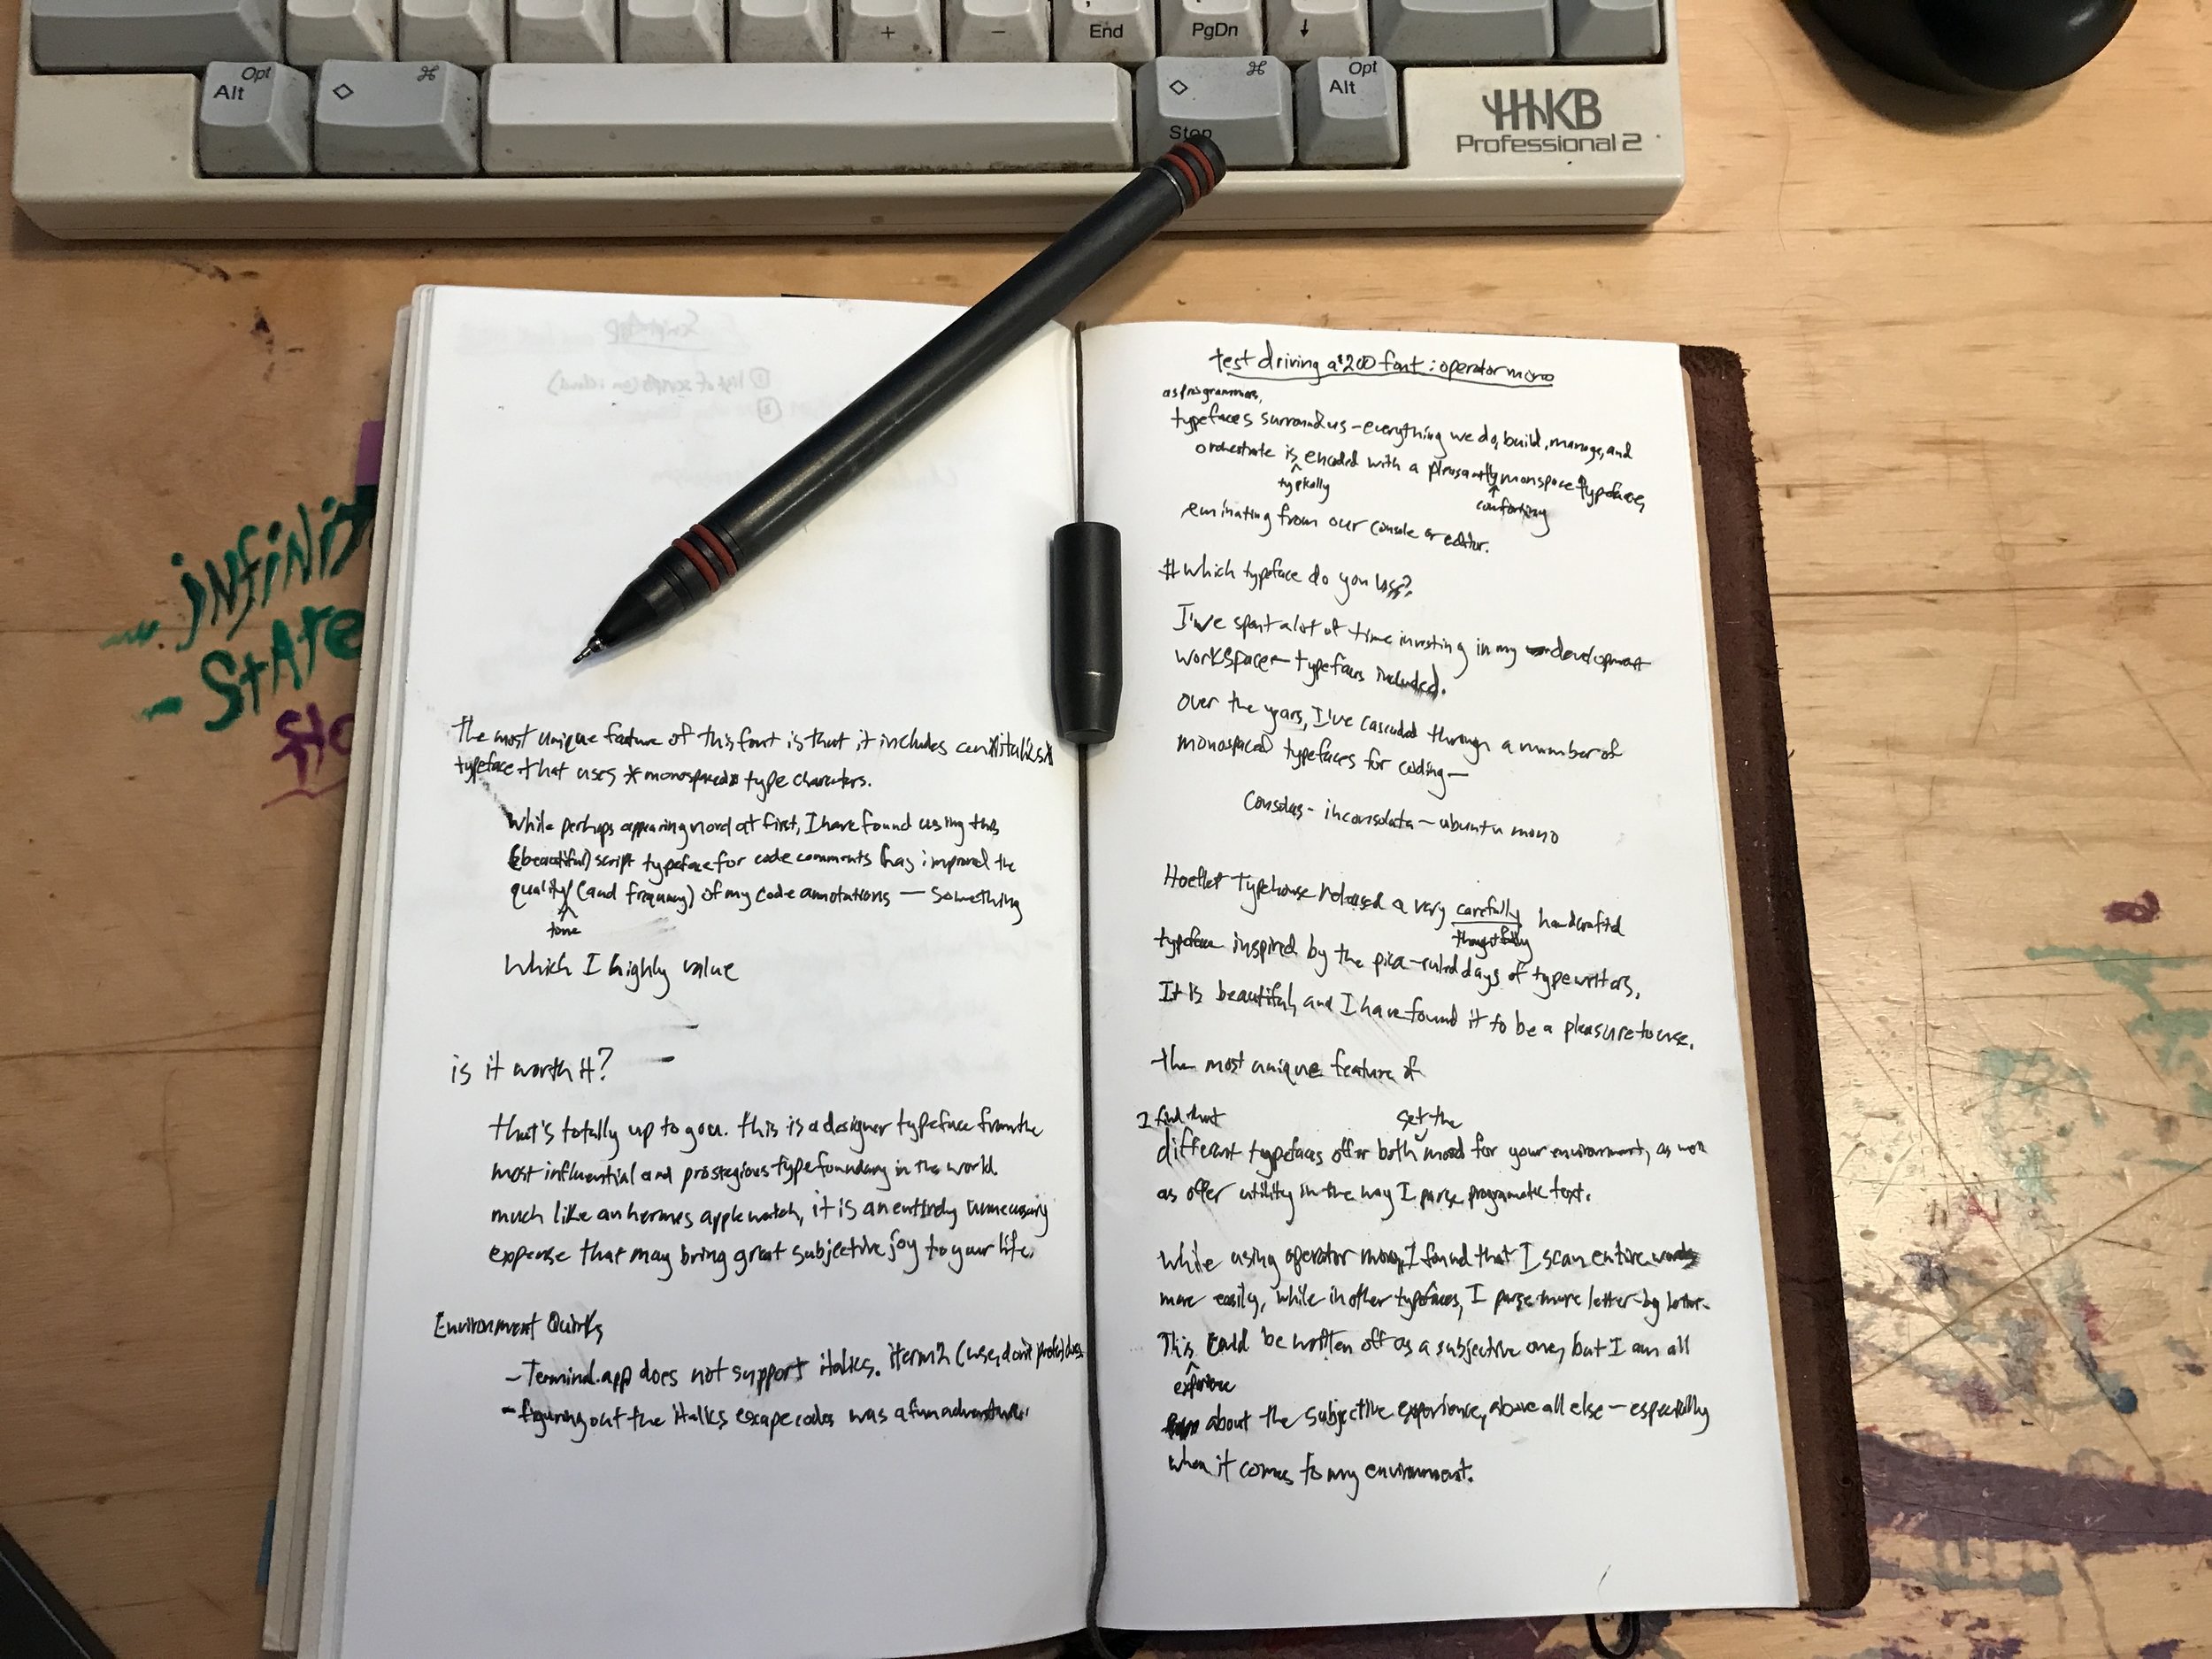 +
-
End
PgDn
↓
Opt
Alt
⌘
◇
⌘
◇
Stop
Opt
Alt
HHKB
Professional 2
infinit
State
Sto
The most unique feature of this font is that it includes an *italics*
typeface that uses *monospaced* type characters.
While perhaps appearing at first, I have found using this
(beautiful) script typeface for code comments has improved the
quality (and frequency) of my code annotations — something
tone
Which I highly value
is it worth it?
that's totally up to you. this is a designer typeface from the
most influential and prestegious type foundary in the world.
much like an hermes apple watch, it is an entirely unnecessary
expense that may bring great subjective joy to your life.
Environment Quirks
- Terminal.app does not support italics. iterm2 (use, don't prefer) does.
- figuring out the italics escape codes was a fun adventure.
test driving a $200 font : operator mono
as programmers,
typefaces surround us - everything we do, build, manage, and
orchestrate is encoded with a pleasantly monospace typeface,
typically
comforting
eminating from our console or editor.
# Which typeface do you use?
I've spent a lot of time investing in my development
workspace - typefaces included.
over the years, I've cascaded through a number of
monospaced typefaces for coding—
Consolas - inconsolata - ubuntu mono
Hoefler Typehouse released a very carefully handcrafted
thoughtfully
typeface inspired by the pica-ruled days of typewriters.
It is beautiful, and I have found it to be a pleasure to use.
the most unique feature of
I find that
set the
different typefaces offer both mood for your environment, as well
as offer utility in the way I parse programatic text.
While using operator mono, I found that I scan entire words
more easily, while in other typefaces, I parse more letter-by letter.
This could be written off as a subjective one, but I am all
experience
about the subjective experience, above all else — especially
when it comes to my environment.